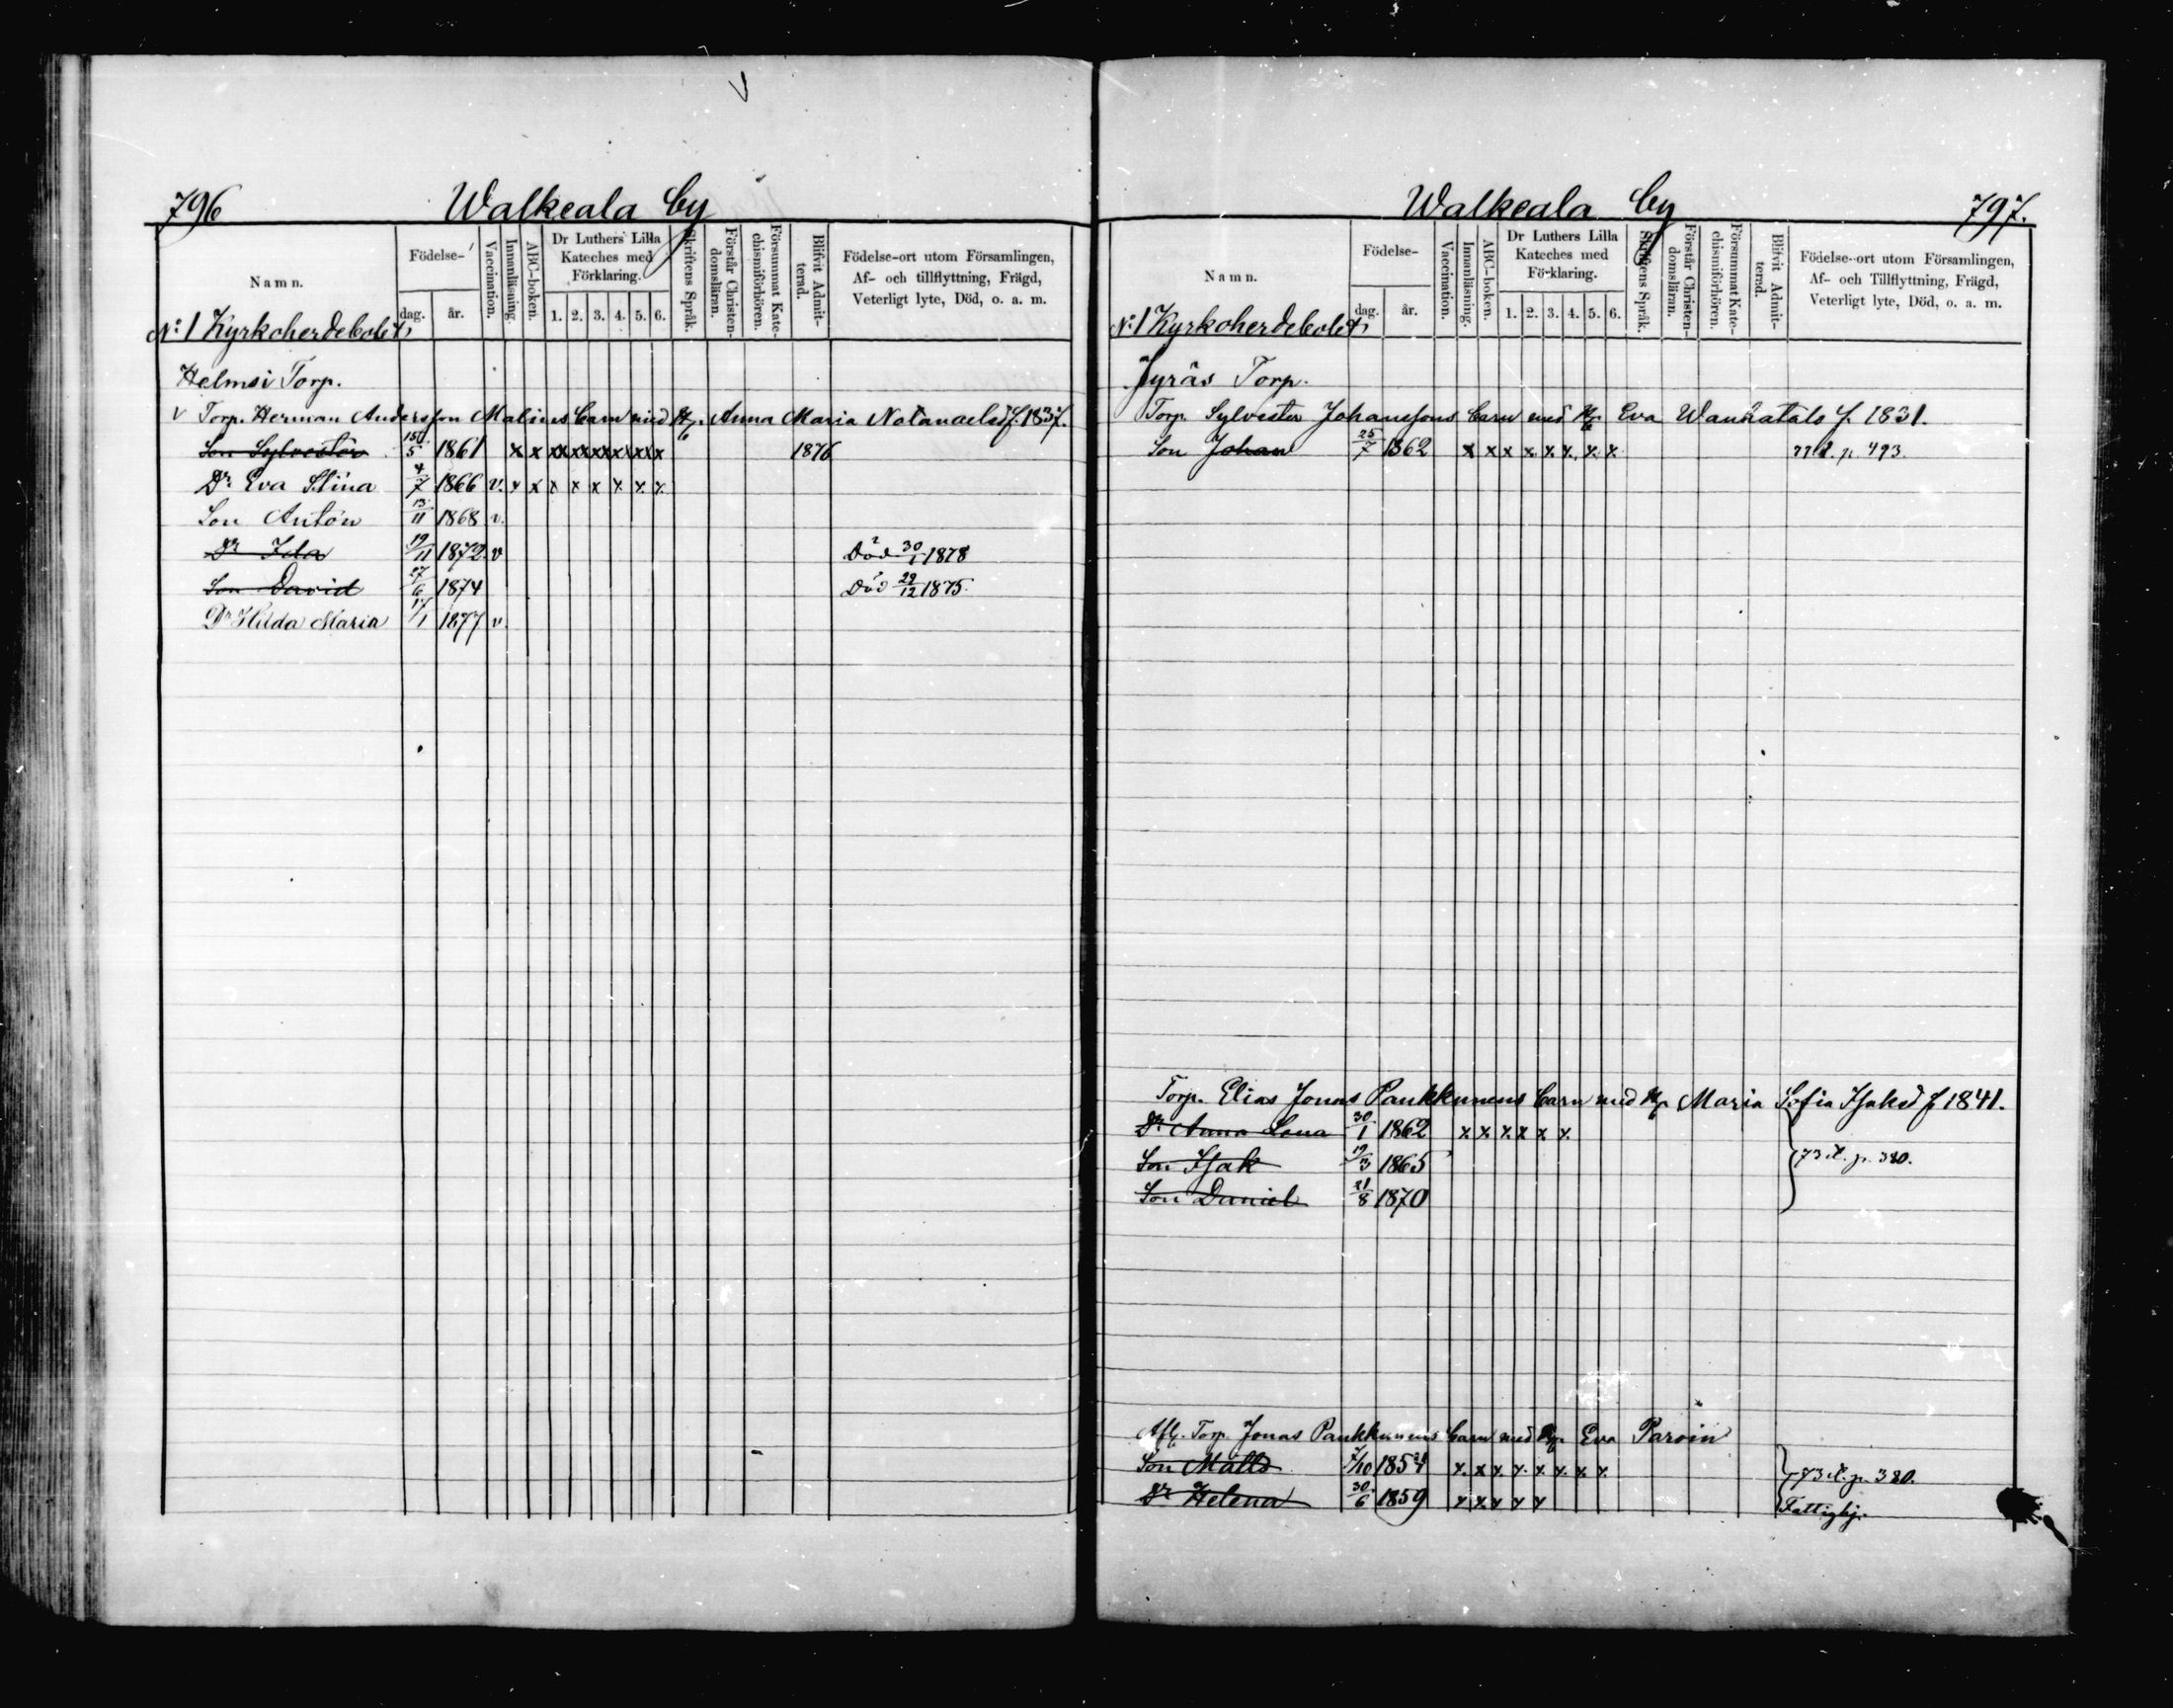 796
Walkeala by
Namn.
Födelse-
dag.
år.
Vaccination.
Innanläsning.
ABC-boken.
Dr Luthers Lilla
Kateches med
Förklaring.
1. 2. 3. 4. 5. 6.
Skriftens Språk.
Förstår Christen-
domsläran.
Försummat Kate-
chismiförhören.
Blifvit Admit-
terad.
Födelse-ort utom Församlingen,
Af- och tillflyttning, Frägd,
Veterligt lyte, Död, o. a. m.
No 1 Kyrkoherdebolet,
Helmsi Torp.
v Torp. Herman Andersson Malines barn med Anna Maria Natanaelsd f. 1837.
Son Sylvester 15/5 1861 x x x x x x x x 1876
Dr Eva Stina 4/7 1866 v. x x x x x x x x
Son Anton 13/11 1868 v.
Dr Ida 19/11 1872 v Död 30/1 1878
Son David 27/6 1874 Död 29/12 1875.
Dr Hilda Maria 17/1 1877 v.
Walkeala by
797.
Namn.
Födelse-
dag.
år.
Vaccination.
Innanläsning.
ABC-boken.
Dr Luthers Lilla
Kateches med
Förklaring.
1. 2. 3. 4. 5. 6.
Skriftens Språk.
Förstår Christen-
domsläran.
Försummat Kate-
chismiförhören.
Blifvit Admit-
terad.
Födelse-ort utom Församlingen,
Af- och Tillflyttning, Frägd,
Veterligt lyte, Död, o. a. m.
No 1 Kyrkoherdebolet,
Jyräs Torp.
Torp. Sylvester Johanssons barn med Eva Wanhatalo f. 1831.
Son Johan 25/7 1862 x x x x x x x x p. 493.
Torp. Elias Jonas Paukkunens barn med Maria Sofia Isaksd f 1841.
Dr Anna Lena 30/1 1862 x x x x x x
Son Isak 19/3 1865 p. 380.
Son Daniel 21/8 1870
Afl. Torp. Jonas Paukkunens barn med Eva Paroin
Son Matts 7/10 1854 x x x x x x x x p. 380.
Dr Helena 30/6 1859 x x x x x Fattighj.